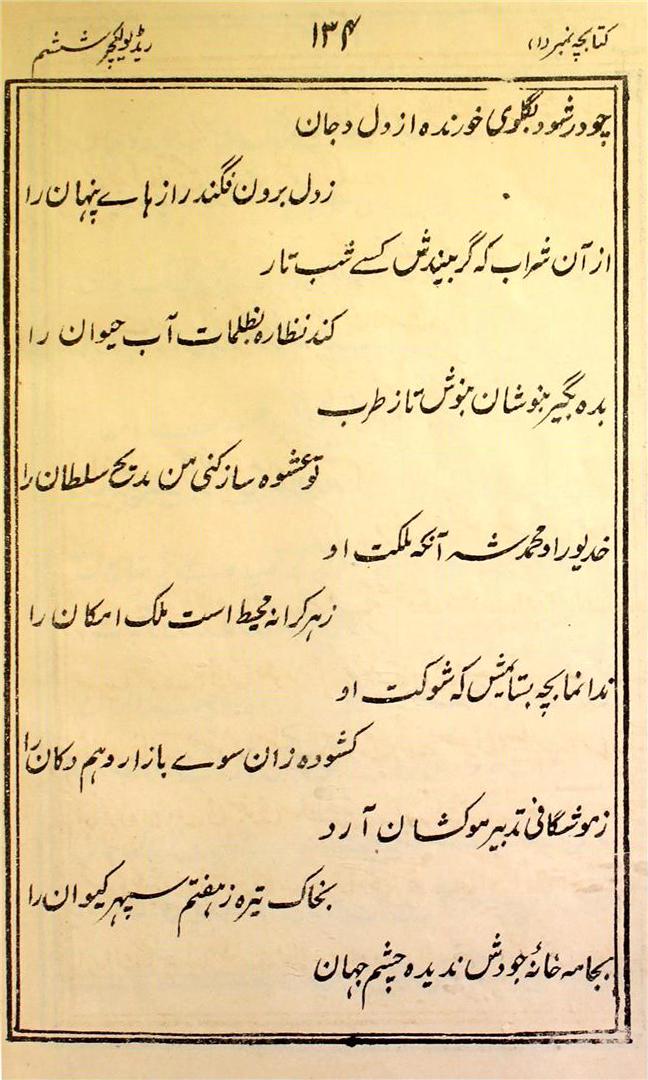 کتابچہ نمبر (۱)
۱۳۴
ریڈیو لیکچر ششم
چو در شود بگلوی خورنده از دل و جان
ز دل برون فگند رازہاے پنہان را
از آن شراب کہ گر بیندش کسے شب تار
کند نظاره بظلمات آب حیوان را
بده بگیر بنوشان بنوش تا ز طرب
تو عشوه ساز کنی من مدیح سلطان را
خدیو راد محمد شہ آنکہ ملکت او
ز ہر کرانہ محیط است ملک امکان را
ندانما بچہ بستایمش کہ شوکت او
کشوده زان سوے بازار وہم دکان را
ز موشگافی تدبیر موکشان آرد
بخاک تیره ز ہفتم سپہر کیوان را
بجامہ خانۂ جودش ندیده چشم جہان